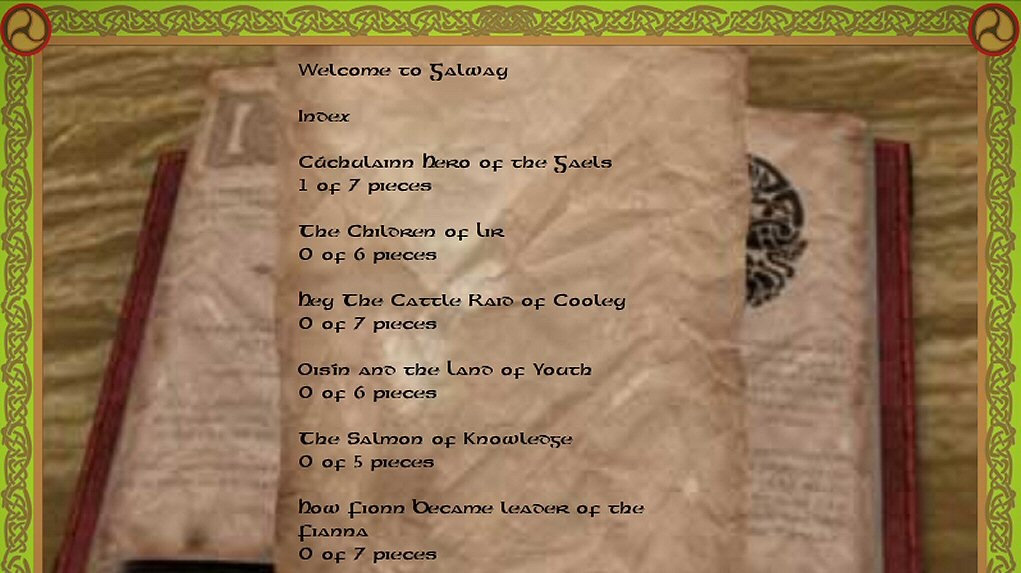 Welcome to Galway
Index
Cúchulainn Hero of the Gaels
1 of 7 pieces
The Children of Lir
0 of 6 pieces
Hey The Cattle Raid of Cooley
0 of 7 pieces
Oisín and the Land of Youth
0 of 6 pieces
The Salmon of Knowledge
0 of 5 pieces
How Fionn became leader of the
Fianna
0 of 7 pieces